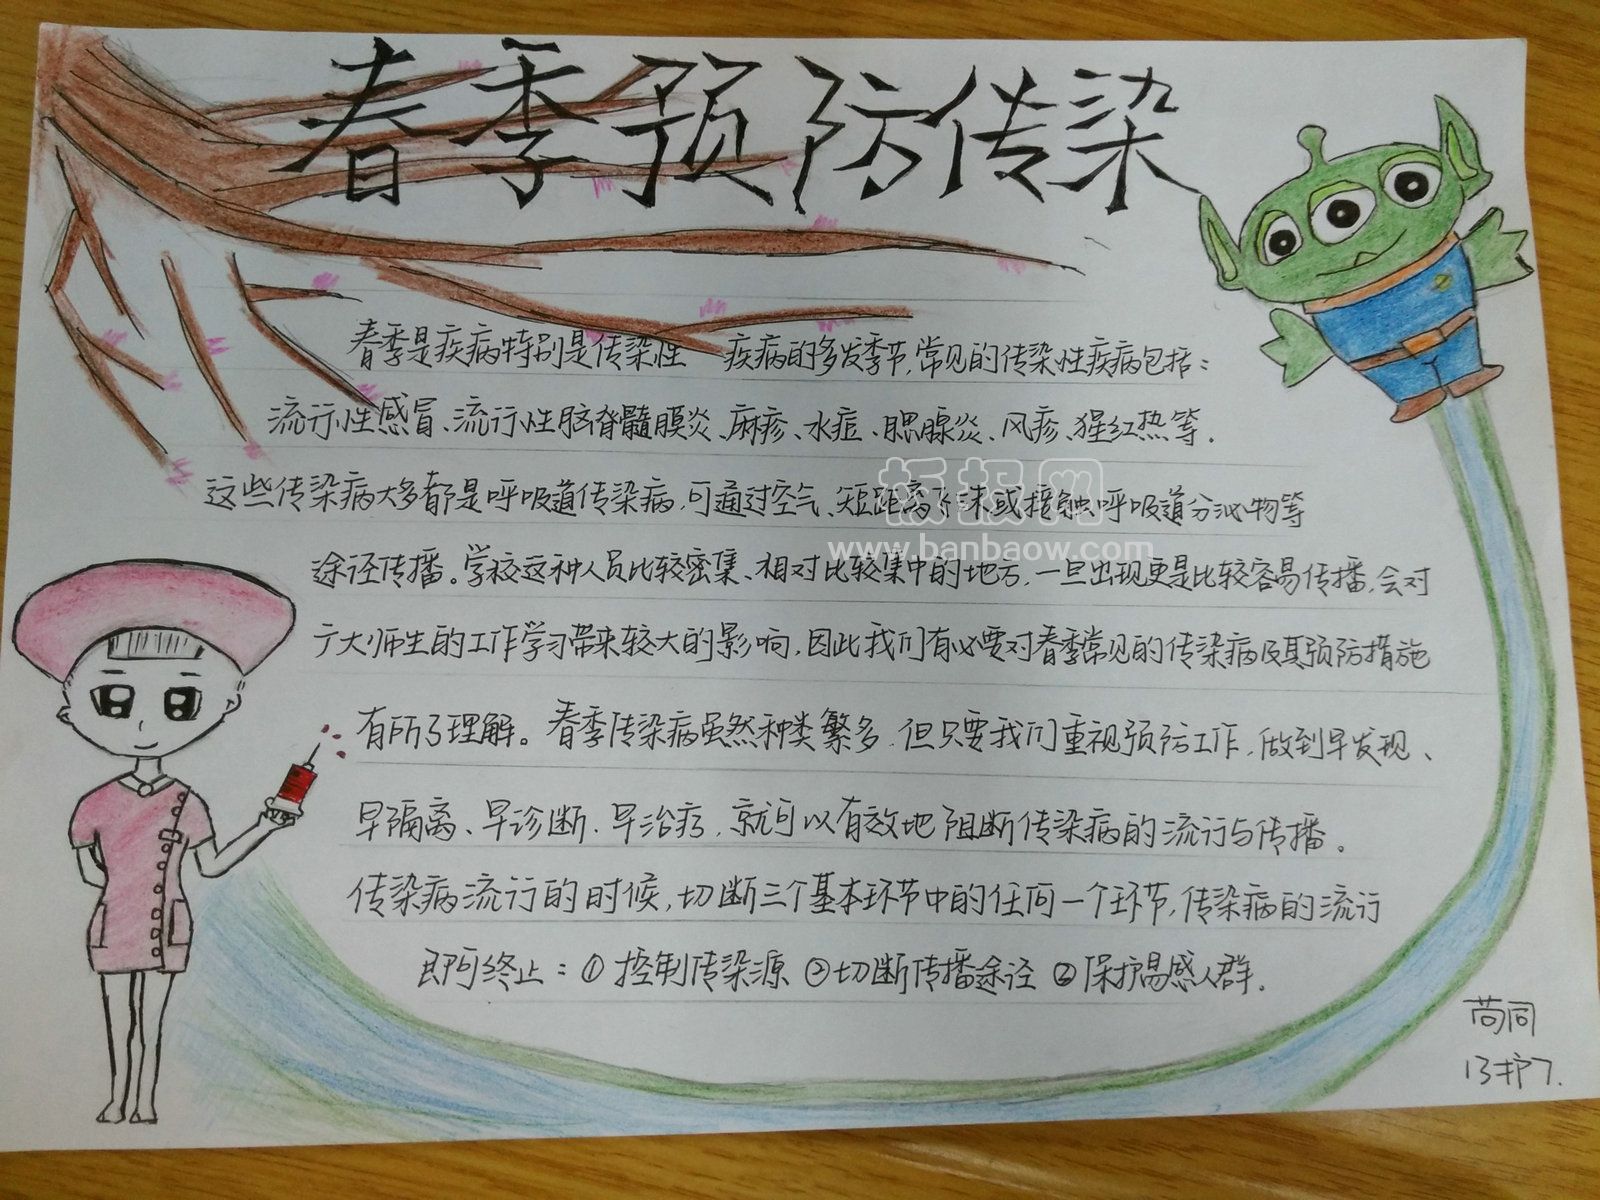 春季预防传染
春季是疾病特别是传染性 疾病的多发季节,常见的传染性疾病包括:
流行性感冒、流行性脑脊髓膜炎、麻疹、水痘、腮腺炎、风疹、猩红热等.
这些传染病大多都是呼吸道传染病,可通过空气、短距离飞沫或接触呼吸道分泌物等
途径传播。学校这种人员比较密集、相对比较集中的地方,一旦出现更是比较容易传播,会对
广大师生的工作学习带来较大的影响,因此我们有必要对春季常见的传染病及其预防措施
有所了理解。春季传染病虽然种类繁多,但只要我们重视预防工作,做到早发现、
早隔离、早诊断、早治疗,就可以有效地阻断传染病的流行与传播。
传染病流行的时候,切断三个基本环节中的任何一个环节,传染病的流行
即可终止:①控制传染源②切断传播途径②保护易感人群.
13护7.
板报网
www.banbaow.com